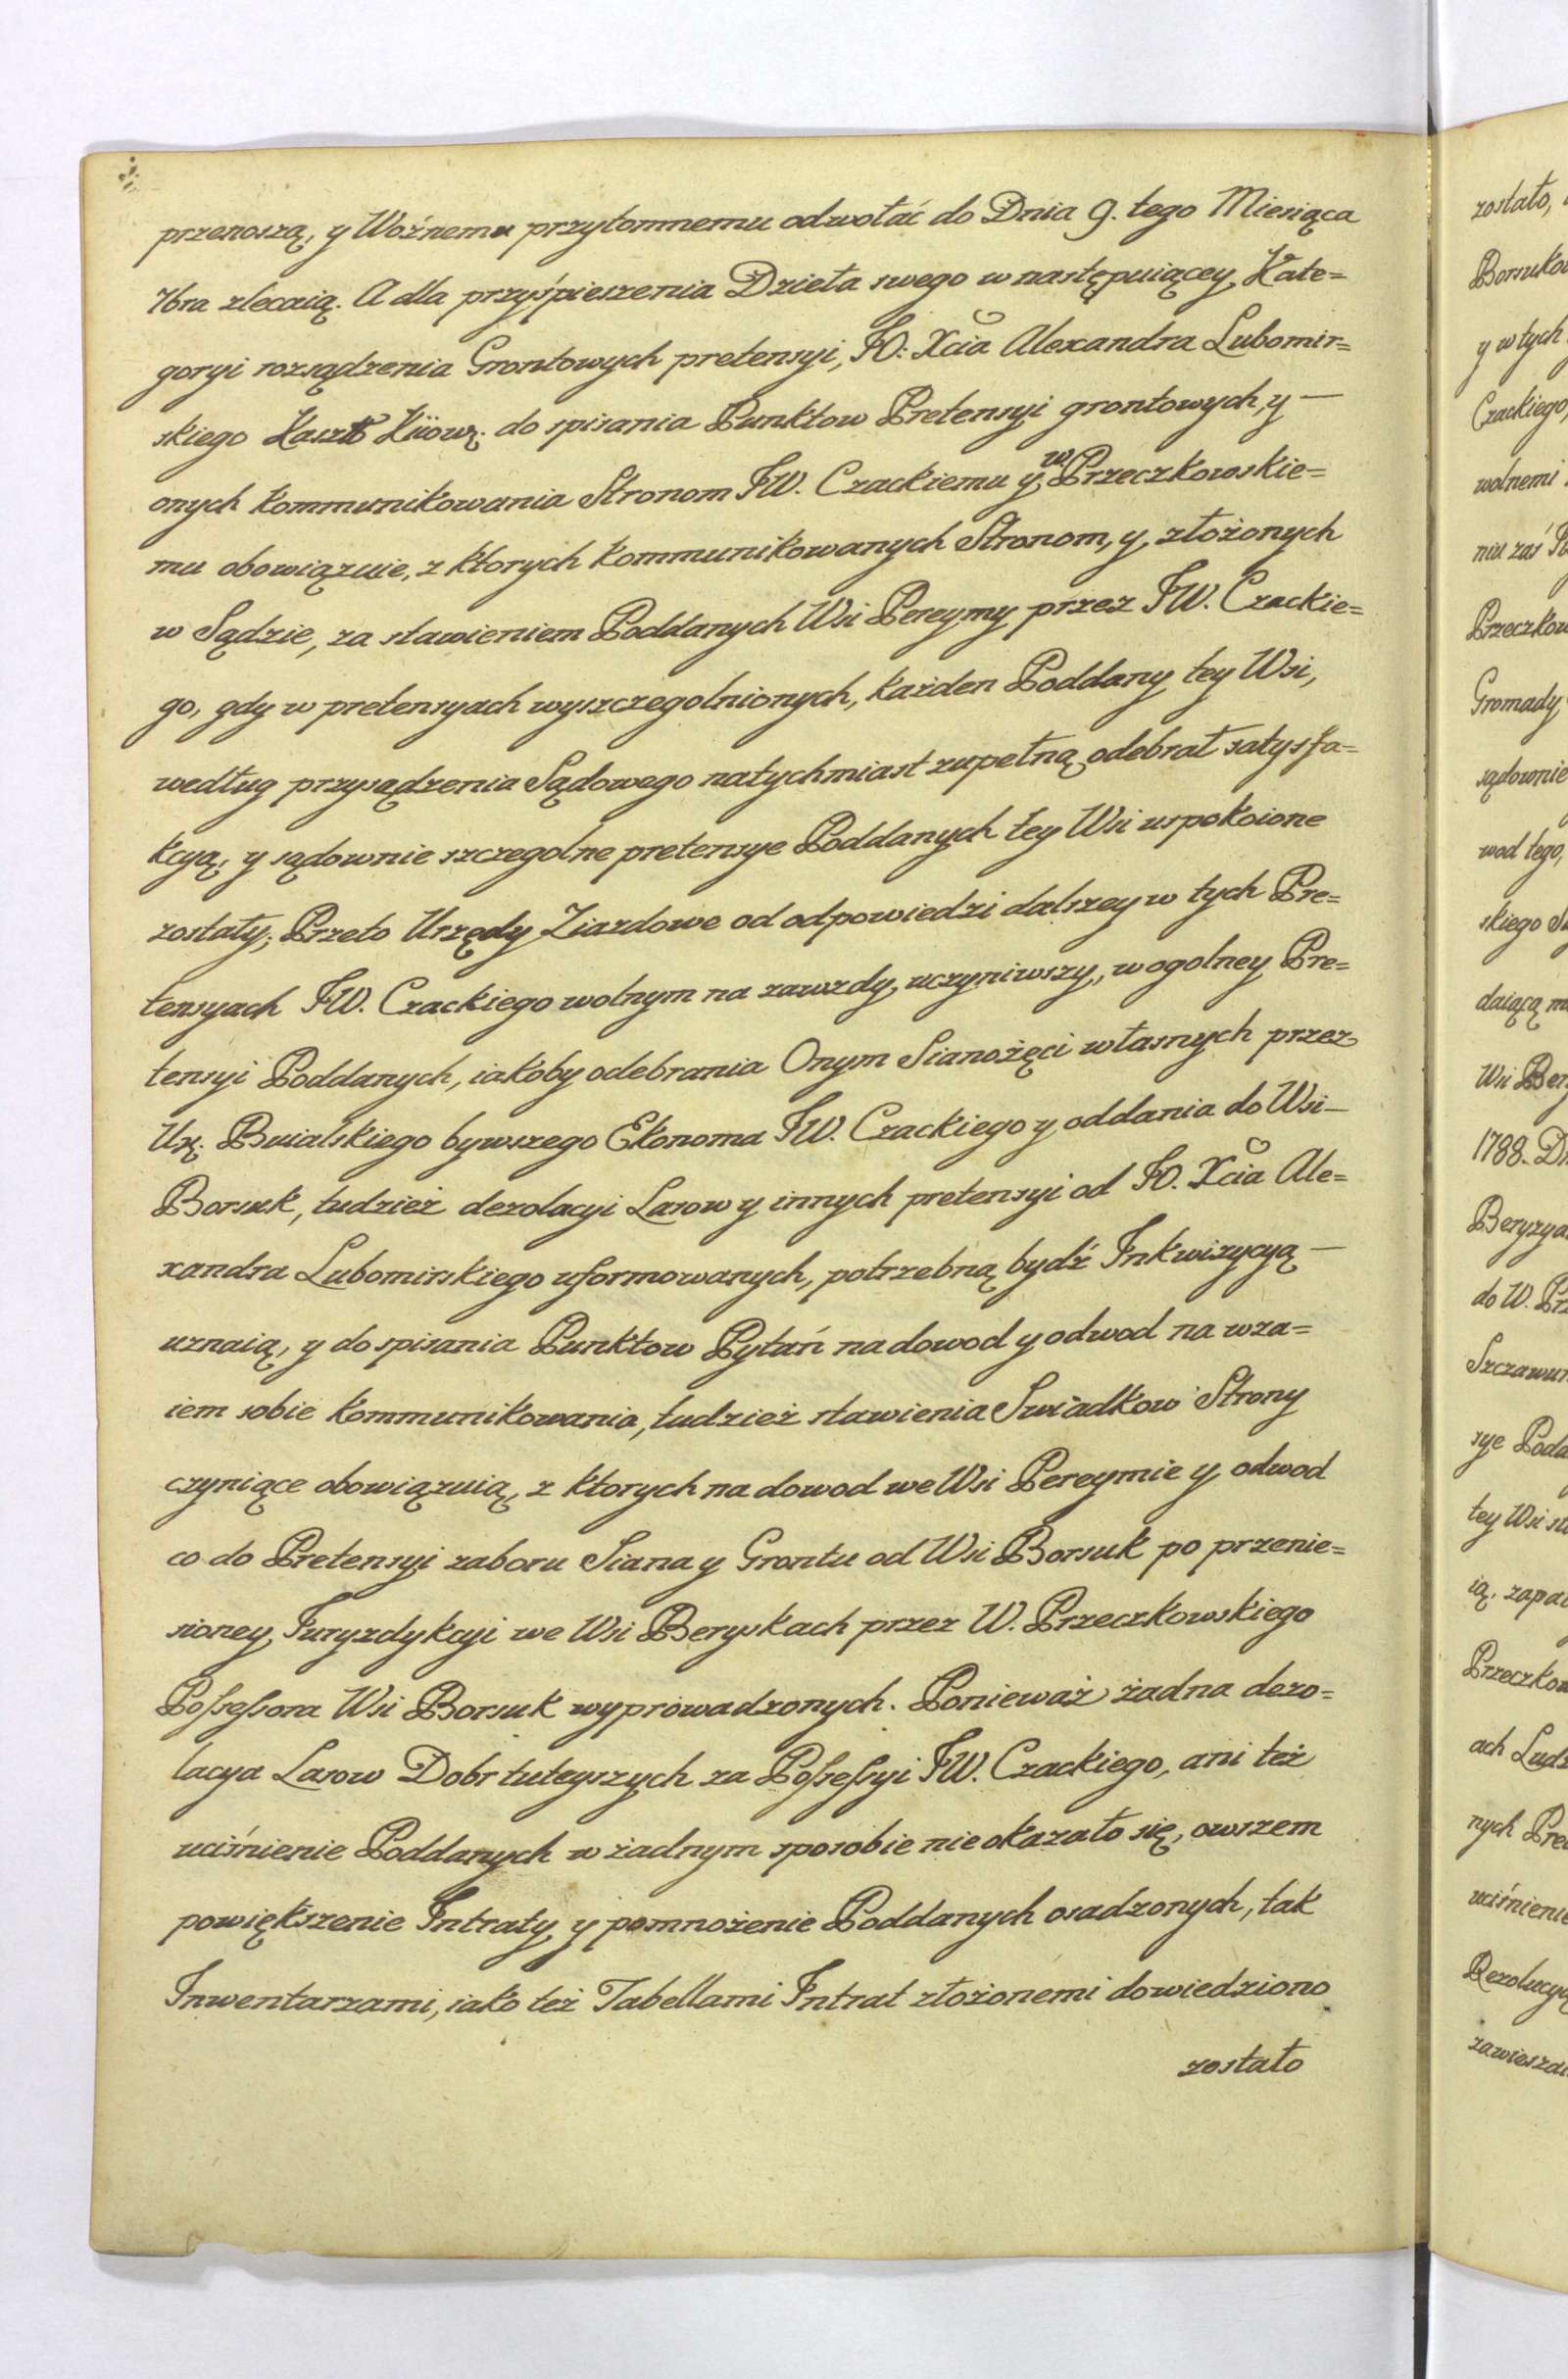 przenoszą, y Woźnemu przytomnemu odwołać do Dnia 9. tego Miesiąca
7bra zlecaią. A dla przyśpieszenia Dzieła swego w następuiącey Kate=
goryi rozsądzenia Grontowych pretensyi, JO: Xcia Alexandra Lubomir=
skiego Kaszt Kiiow: do spisania Punktow Pretensyi grontowych, y —
onych kommunikowania Stronom JW. Czackiemu y W Przeczkowskie=
mu obowiązuie, z ktorych kommunikowanych Stronom, y złożonych
w Sądzie, za stawieniem Poddanych Wsi Pereymy przez JW. Czackie=
go, gdy w pretensyach wyszczegolnionych, każden Poddany tey Wsi,
według przysądzenia Sądowego natychmiast zupełną odebrał satysfa=
kcyą, y sądownie szczegolne pretensye Poddanych tey Wsi uspokoione
zostały; Przeto Urzędy Ziazdowe od odpowiedzi dalszey w tych Pre=
tensyach JW. Czackiego wolnym na zawzdy uczyniwszy, w ogolney Pre=
tensyi Poddanych, iakoby odebrania Onym Sianożęci własnych przez
Ur: Buialskiego bywszego Ekonoma JW. Czackiego y oddania do Wsi —
Borsuk, tudzież dezolacyi Lasow y innych pretensyi od JO. Xcia Ale=
xandra Lubomirskiego uformowanych, potrzebną bydź Inkwizycyą —
uznaią, y do spisania Punktow Pytań na dowod y odwod na wza=
iem sobie kommunikowania, tudzież stawienia Swiadkow Strony
czyniące obowiązuią, z ktorych na dowod we Wsi Pereymie y odwod
co do Pretensyi zaboru Siana y Grontu od Wsi Borsuk po przenie=
sioney Juryzdykcyi we Wsi Beryskach przez W. Przeczkowskiego
Possessora Wsi Borsuk wyprowadzonych. Ponieważ żadna dezo=
lacya Lasow Dobr tuteyszych za Possessyi JW. Czackiego, ani też
uciśnienie Poddanych w żadnym sposobie nie okazało się, owszem
powiększenie Intraty y pomnożenie Poddanych osadzonych, tak
Inwentarzami, iako też Tabellami Intrat złożonemi dowiedziono
zostało
zostało,
y w tych
Czackiego,
wolnemi
niu zaś
Gromady
sądownie
wod tego,
skiego
daiącą
1788.
do W.
tey Wsi
ach
nych